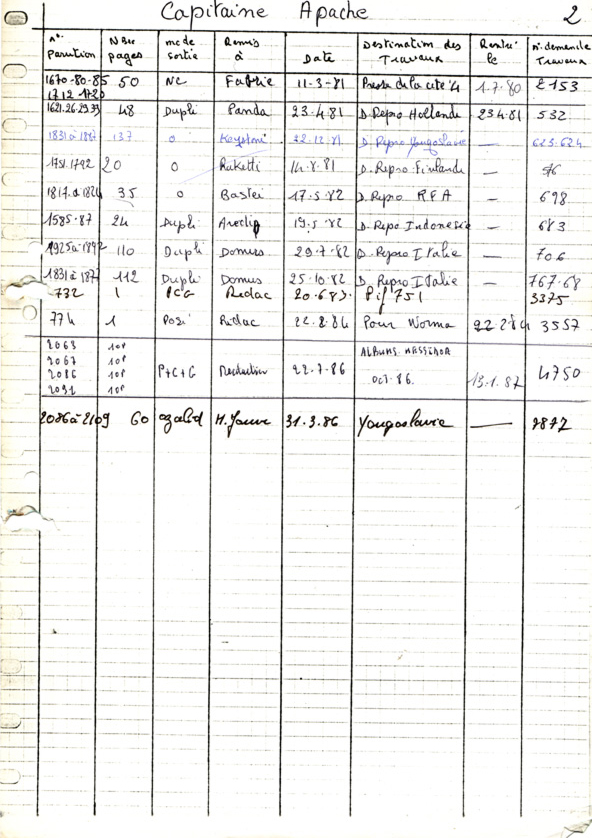 Capitaine Apache 2
n° Parution Nbre pages mc de sortie Remis à Date Destination des Travaux Rentré le n° demande Travaux
1670-80-85 50 NC 11-3-81 1.7.80 2153
1712 1720
1621.26.29.33 48 Dupli Panda 23.4.81 D. Repro Hollande 23.4.81 532
1831 à 1877 137 0 22.12.81 D Repro Yougoslavie — 623.624
1751.1792 20 0 14.8.81 D. Repro Finlande — 56
1817.à 1824 35 0 Bastei 17.5.82 D. Repro RFA — 698
1585.87 24 Dupli 19.5.82 D. Repro Indonesie — 683
110 Dupli Domus 29.7.82 D. Repro Italie — 706
1831 à 1877 112 Dupli Domus 25.10.82 D Repro Italie — 767.68
732 1 Redac 20.6.83. Pif 751 3375
774 1 Posi Rédac 22.8.84 Pour Worma 22 2 84 3557
2063 10P
2067 10P ALBUMS MESSIDOR
2086 10P P+C+G Redaction 22.7.86 Oct. 86. 13.1.87 4750
2092 10P
2086 à 2109 60 ozalid 31.3.86 Yougoslavie —